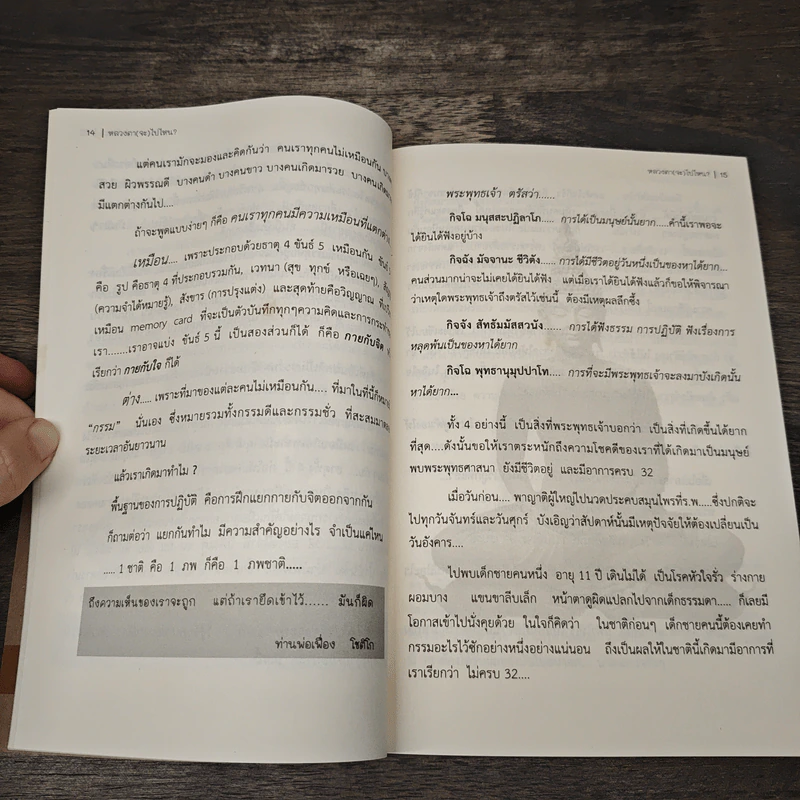 14 | หลวงตา(จะ)ไปไหน?
แต่คนเรามักจะมองและคิดกันว่า คนเราทุกคนไม่เหมือนกัน
สวย ผิวพรรณดี บางคนดำ บางคนขาว บางคนเกิดมารวย บางคนเกิดมา
มีแตกต่างกันไป....
ถ้าจะพูดแบบง่ายๆ ก็คือ คนเราทุกคนมีความเหมือนที่แตกต่าง
เหมือน.... เพราะประกอบด้วยธาตุ 4 ขันธ์ 5 เหมือนกัน ขันธ์
คือ รูป คือธาตุ 4 ที่ประกอบรวมกัน, เวทนา (สุข ทุกข์ หรือเฉยๆ),
(ความจำได้หมายรู้), สังขาร (การปรุงแต่ง) และสุดท้ายคือวิญญาณ
เหมือน memory card ที่จะเป็นตัวบันทึกทุกๆความคิดและการกระทำ
เรา.......เราอาจแบ่ง ขันธ์ 5 นี้ เป็นสองส่วนก็ได้ ก็คือ กายกับจิต
เรียกว่า กายกับใจ ก็ได้
ต่าง..... เพราะที่มาของแต่ละคนไม่เหมือนกัน.... ที่มาในที่นี้ก็หมาย
“กรรม” นั่นเอง ซึ่งหมายรวมทั้งกรรมดีและกรรมชั่ว ที่สะสมมาตลอด
ระยะเวลาอันยาวนาน
แล้วเราเกิดมาทำไม ?
พื้นฐานของการปฏิบัติ คือการฝึกแยกกายกับจิตออกจากกัน
ก็ถามต่อว่า แยกกันทำไม มีความสำคัญอย่างไร จำเป็นแค่ไหน
..... 1 ชาติ คือ 1 ภพ ก็คือ 1 ภพชาติ.....
ถึงความเห็นของเราจะถูก แต่ถ้าเรายึดเข้าไว้...... มันก็ผิด
ท่านพ่อเฟื่อง โชติโก
หลวงตา(จะ)ไปไหน? | 15
พระพุทธเจ้า ตรัสว่า......
กิจโฉ มนุสสะปฏิลาโภ.... การได้เป็นมนุษย์นั้นยาก.....คำนี้เราพอจะ
ได้ยินได้ฟังอยู่บ้าง
กิจฉัง มัจจานะ ชีวิตัง.....การได้มีชีวิตอยู่วันหนึ่งเป็นของหาได้ยาก...
คนส่วนมากน่าจะไม่เคยได้ยินได้ฟัง แต่เมื่อเราได้ยินแล้วก็ขอให้พิจารณา
ว่าเหตุใดพระพุทธเจ้าถึงตรัสไว้เช่นนี้ ต้องมีเหตุผลลึกซึ้ง
กิจจัง สัทธัมมัสสวนัง...... การได้ฟังธรรม การปฏิบัติ ฟังเรื่องการ
หลุดพ้นเป็นของหาได้ยาก
กิจโฉ พุทธานุมุปปาโท..... การที่จะมีพระพุทธเจ้าจะลงมาบังเกิดนั้น
หาได้ยาก...
ทั้ง 4 อย่างนี้ เป็นสิ่งที่พระพุทธเจ้าบอกว่า เป็นสิ่งที่เกิดขึ้นได้ยาก
ที่สุด....ดังนั้นขอให้เราตระหนักถึงความโชคดีของเราที่ได้เกิดมาเป็นมนุษย์
พบพระพุทธศาสนา ยังมีชีวิตอยู่ และมีอาการครบ 32
เมื่อวันก่อน.... พาญาติผู้ใหญ่ไปนวดประคบสมุนไพรที่ร.พ.....ซึ่งปกติจะ
ไปทุกวันจันทร์และวันศุกร์ บังเอิญว่าสัปดาห์นั้นมีเหตุปัจจัยให้ต้องเปลี่ยนเป็น
วันอังคาร....
ไปพบเด็กชายคนหนึ่ง อายุ 11 ปี เดินไม่ได้ เป็นโรคหัวใจรั่ว ร่างกาย
ผอมบาง แขนขาลีบเล็ก หน้าตาดูผิดแปลกไปจากเด็กธรรมดา..... ก็เลยมี
โอกาสเข้าไปนั่งคุยด้วย ในใจก็คิดว่า ในชาติก่อนๆ เด็กชายคนนี้ต้องเคยทำ
กรรมอะไรไว้ซักอย่างหนึ่งอย่างแน่นอน ถึงเป็นผลให้ในชาตินี้เกิดมามีอาการที่
เราเรียกว่า ไม่ครบ 32....